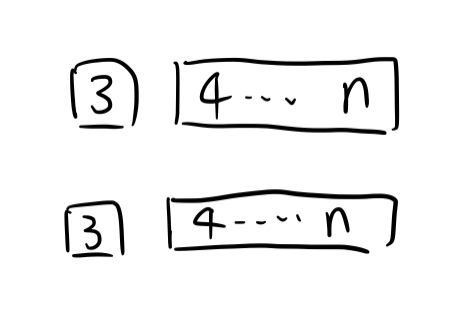 3 4... n
3 4..... n